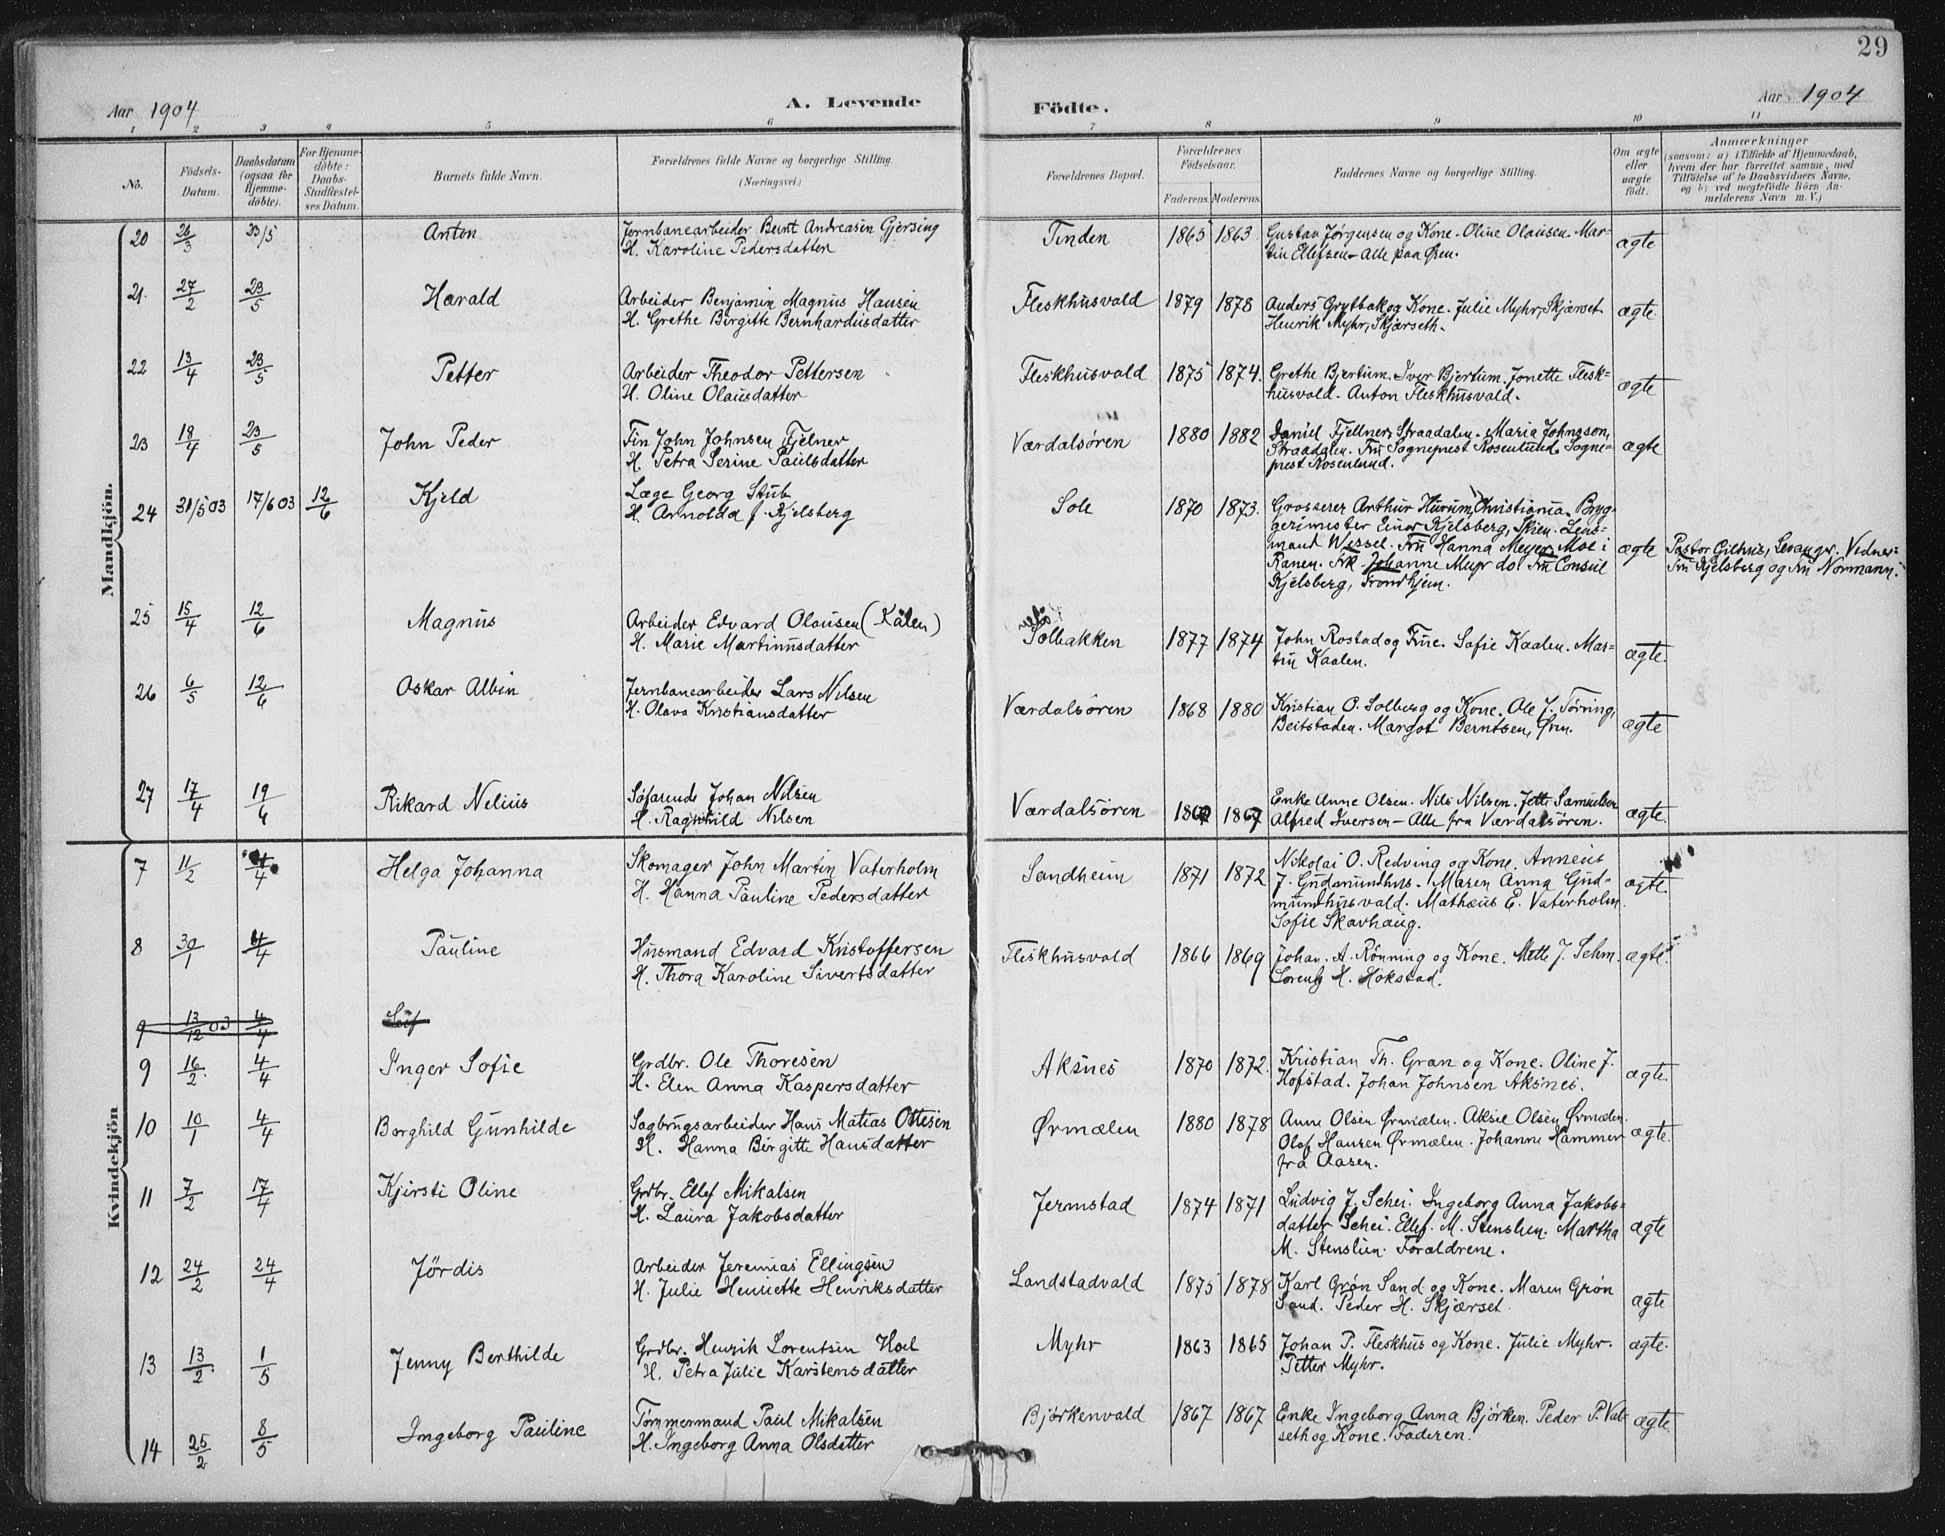 29
Aar 1904 A. Levende Födte. Aar 1904
1 2 3 4 5 6 7 8 9 10 11
No. Födsels-Datum. Daabsdatum (ogsaa for Hjemmedöbte). For Hjemmedöbte: Daabs-Stadfæstelses Datum. Barnets fulde Navn. Forældrenes fulde Navne og borgerlige Stilling. (Næringsvei.) Forældrenes Bopæl. Forældrenes Födselsaar. Faderens. Moderens. Faddernes Navne og borgerlige Stilling. Om ægte eller uægte født. Anmærkninger (saasom: a) i Tilfælde af Hjemmedaab, hvem der har forrettet samme, med Tilføielse af to Daabsvidners Navne, og b) ved uægtefödte Börn Anmelderens Navn m. V.)
Mandkjön.
20 26/3 23/5 Anton Jernbanearbeider Bernt Andreasen Gjersing
H. Karoline Pedersdatter
Tinden 1865 1863 Gustav Jørgensen og Kone. Oline Olausen. Mar-
tin Ellefsen – Alle paa Øren. ægte
21. 27/2 23/5 Harald Arbeider Benjamin Magnus Hansen
H. Grethe Birgitte Bernhardusdatter
Fleskhusvald 1879 1878 Anders Grytbak og Kone. Julie Myhr, Skjærset
Henrik Myhr, Skjærseth. ægte.
22 13/4 23/5 Petter Arbeider Theodor Pettersen
H. Oline Olausdatter
Fleskhusvald 1875 1874. Grethe Bjertum. Iver Bjertum. Jonette Flesk-
husvald. Anton Fleskhusvald. ægte
23 18/4 23/5 John Peder Fin John Johnsen Fjelner
H. Petra Serine Paulsdatter
Værdalsören 1880 1882 Daniel Fjellner, Straadalen. Maria Johnsson,
Straadalen. Fru Sogneprest Rosenlund. Sogne-
prest Rosenlund. ægte
24 31/5 03 17/6 03 12/6 Kjeld Læge Georg Stub
H. Arnolda f. Kjelsberg
Sole 1870 1873. Grosserer Arthur Hurum, Christiania. Bryg-
gerimester Einar Kjelsberg, Skien. Lens-
mand Wessel. Fru Hanna Meyer, Moe i
Ranen. Frk. Johanne Meyer do. Fru Consul
Kjelsberg, Trondhjem.
ægte Pastor Gilhus, Levanger. Vidner:
Fru Kjelsberg og Fru Normann.
25 15/4 12/6 Magnus Arbeider Edvard Olausen (Kålen)
H. Marie Martinusdatter
Solbakken 1877 1874 John Rostad og Frue. Sofie Kaalen. Mar-
tin Kaalen. ægte.
26 6/5 12/6 Oskar Albin Jernbanearbeider Lars Nilsen
H. Olava Kristiansdatter
Værdalsören 1868 1880 Kristian O. Solberg og Kone. Ole J. Tørring,
Beitstaden. Margot Berntsen, Øren. ægte
27 17/4 19/6 Rikard Nelius Söfarende Johan Nilsen
H. Ragnhild Nilsen
Værdalsören 1867 Enke Anne Olsen. Nils Nilsen. Jette Samuelsen
Alfred Iversen – Alle fra Værdalsören. ægte.
Kvindekjön
7 11/2 4/4 Helga Johanna Skomager John Martin Vaterholm
H. Hanna Pauline Pedersdatter
Sandheim 1871 1872 Nikolai O. Redving og Kone. Anneus
J. Gudmundhus. Maren Anna Gud-
mundhusvald. Mathæus E. Vaterholm.
Sofie Skavhaug. ægte.
8 30/1 4/4 Pauline Husmand Edvard Kristoffersen
H. Thora Karoline Sivertsdatter
Fleskhusvald 1866 1869 Johan. A. Rönning og Kone. Mette J. Sehm.
Lorents H. Hokstad. ægte.
9 13/12 03 4/4
9 16/2. 4/4 Inger Sofie Grdbr. Ole Thoresen
H. Elen Anna Kaspersdatter
Aksnes 1870 1872. Kristian Th. Gran og Kone. Oline J.
Hofstad. Johan Johnsen Aksnes. ægte.
10 10/1 4/4 Borghild Gunhilde Sagbrugsarbeider Hans Matias Ottesen
H. Hanna Birgitte Hansdatter
Ørmælen 1880 1878 Anne Olsen Ørmælen. Aksel Olsen Ørmælen.
Olaf Hansen Ørmælen. Johanne Hammer
fra Aasen. ægte.
11 7/2 17/4 Kjersti Oline Grdbr. Ellef Mikalsen
H. Laura Jakobsdatter
Jermstad 1874 1871 Ludvig J. Schei. Ingeborg Anna Jakobs-
datter Schei. Ellef. M. Stenslien. Martha
M. Stenslien. Forældrene. ægte
12 24/2 24/4 Jördis Arbeider Jeremias Ellingsen
H. Julie Henriette Henriksdatter
Landstadvald 1875 1878 Karl Grøn Sand og Kone. Maren Grøn
Sand. Peder H. Skjærset. ægte
13 13/2. 1/5 Jenny Berthilde Grdbr. Henrik Lorentsen Hoel
H. Petra Julie Karstensdatter
Myhr 1863 1865 Johan P. Fleskhus og Kone. Julie Myhr.
Petter Myhr. ægte.
14 25/2 8/5 Ingeborg Pauline Tømmermand Paul Mikalsen
H. Ingeborg Anna Olsdatter
Bjørkenvald 1867 1867 Enke Ingeborg Anna Bjørken. Peder P. Val-
seth og Kone. Faderen. ægte.